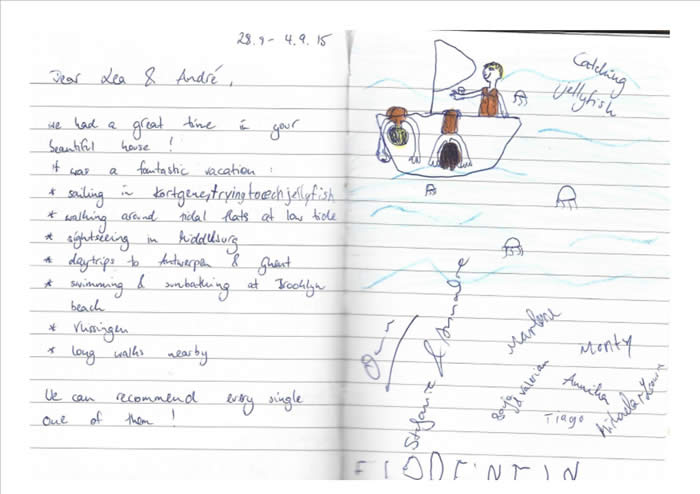 28.9 - 4.9.15
Dear Lea & André,
we had a great time in your
beautiful house!
it was a fantastic vacation:
* sailing in Kortgene, trying to cech jellyfish
* walking around tidal flats at low tide
* sightseeing in Middelburg
* daytrips to Antwerpen & Ghent
* swimming & sunbathing at Brooklyn
beach
* Vlissingen
* long walks nearby
We can recommend every single
one of them!
Catching
jellyfish
Stefanie &
Marlene
Monty
Annika
Tiago